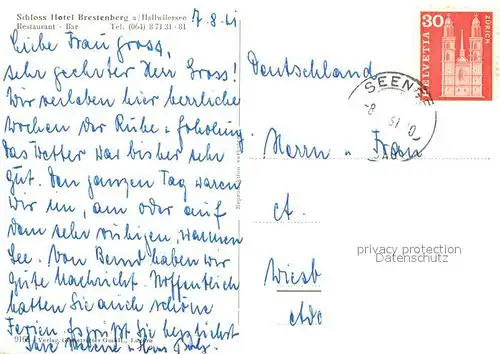 Schloss Hotel Brestenberg a/Hallwilersee
Restaurant - Bar Tel. (064) 8 71 31 - 81
7.8.61
Liebe Frau Gross,
sehr geehrter Herr Gross!
Wir verleben hier herrliche
Wochen der Ruhe + Erholung.
Das Wetter war bisher sehr
gut. Den ganzen Tag waren
wir im, am oder auf
dem sehr ruhigen, warmen
See. Von Bernd haben wir
gute Nachricht. Hoffentlich
hatten Sie auch schöne
Ferien. Es grüßt Sie herzlichst
Ihre Helene + Hans
Verlag
Deutschland
HELVETIA 30 ZÜRICH
SEENGEN
Herrn u. Frau
privacy protection
Datenschutz
Wiesb